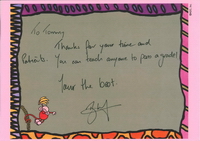 To Tommy
Thanks for your time and
Patients. You can teach anyone to pass a grade!
Your the best.